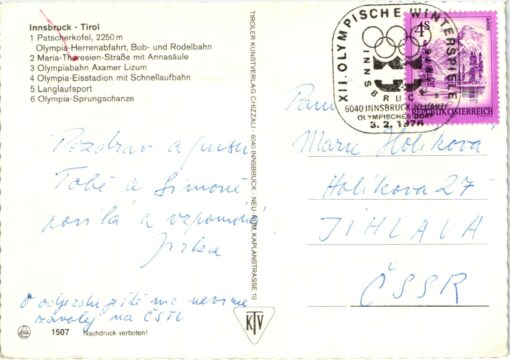 Innsbruck - Tirol
1 Patscherkofel, 2250 m
Olympia-Herrenabfahrt, Bob- und Rodelbahn
2 Maria-Theresien-Straße mit Annasäule
3 Olympiabahn Axamer Lizum
4 Olympia-Eisstadion mit Schnellaufbahn
5 Langlaufsport
6 Olympia-Sprungschanze
Pozdrav a pusu
Tobě a Simoně
posílá a vzpomíná
Jirka
O odjezdu ještě nic nevíme
zavolej na ČSTV
1507 Nachdruck verboten!
TIROLER KUNSTVERLAG CHIZZALI · 6040 INNSBRUCK - NEU-RUM, KAPLANSTRASSE 10
KTV
XII. OLYMPISCHE WINTERSPIELE
INNSBRUCK
6040 INNSBRUCK
OLYMPISCHES DORF
3. 2. 1976
4S
REPUBLIK ÖSTERREICH
Paní
Marie Holíková
Holíkova 27
JIHLAVA
ČSSR